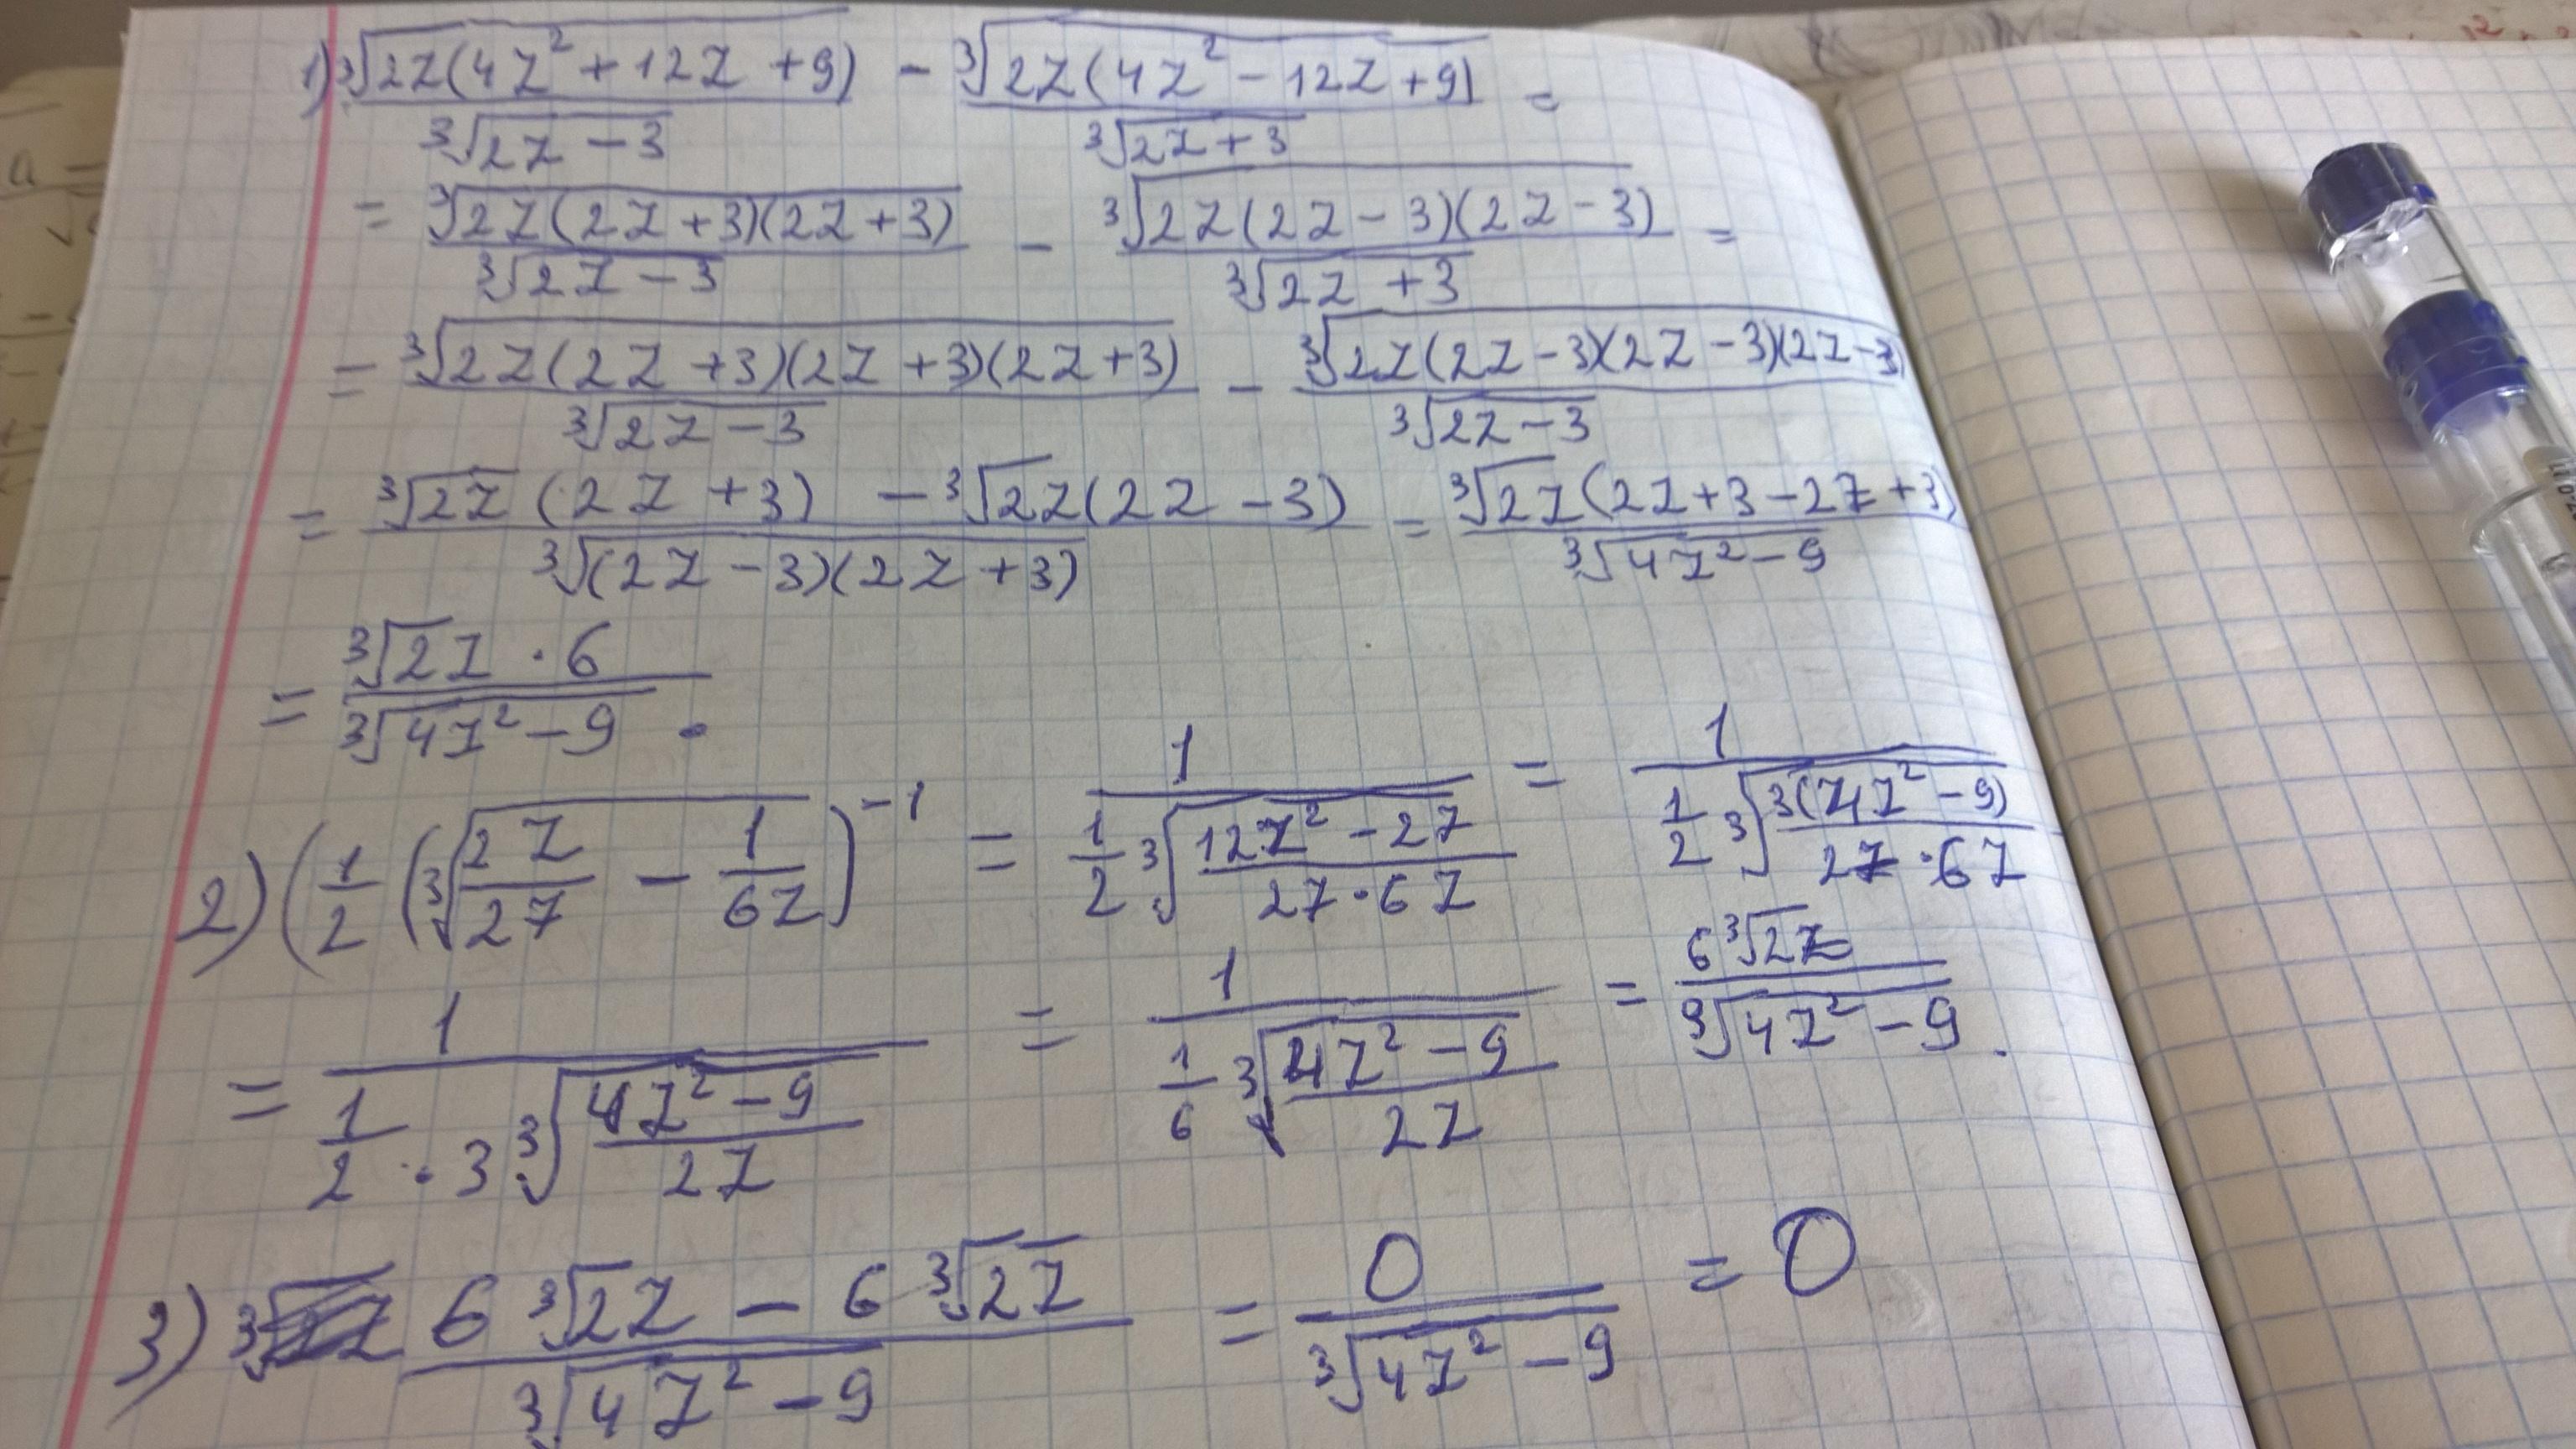 1) ∛(2z(4z² + 12z + 9)) / ∛(2z - 3) - ∛(2z(4z² - 12z + 9)) / ∛(2z + 3) =
= ∛(2z(2z + 3)(2z + 3)) / ∛(2z - 3) - ∛(2z(2z - 3)(2z - 3)) / ∛(2z + 3) =
= ∛(2z(2z + 3)(2z + 3)(2z + 3)) / ∛(2z - 3) - ∛(2z(2z - 3)(2z - 3)(2z - 3)) / ∛(2z - 3)
= (∛(2z) (2z + 3) - ∛2z(2z - 3)) / ∛((2z - 3)(2z + 3)) = ∛2z(2z + 3 - 2z + 3) / ∛(4z² - 9)
= ∛2z · 6 / ∛(4z² - 9) .
2) (1/2 (∛(2z/27 - 1/6z))⁻¹ = 1 / (1/2 ∛((12z² - 27) / (27 · 6z))) = 1 / (1/2 ∛(3(4z² - 9) / (27 · 6z)))
= 1 / (1/2 · 3 ∛((4z² - 9) / 2z)) = 1 / (1/6 ∛((4z² - 9) / 2z)) = 6 ∛2z / ∛(4z² - 9) .
3) (6 ∛2z - 6 ∛2z) / ∛(4z² - 9) = 0 / ∛(4z² - 9) = 0